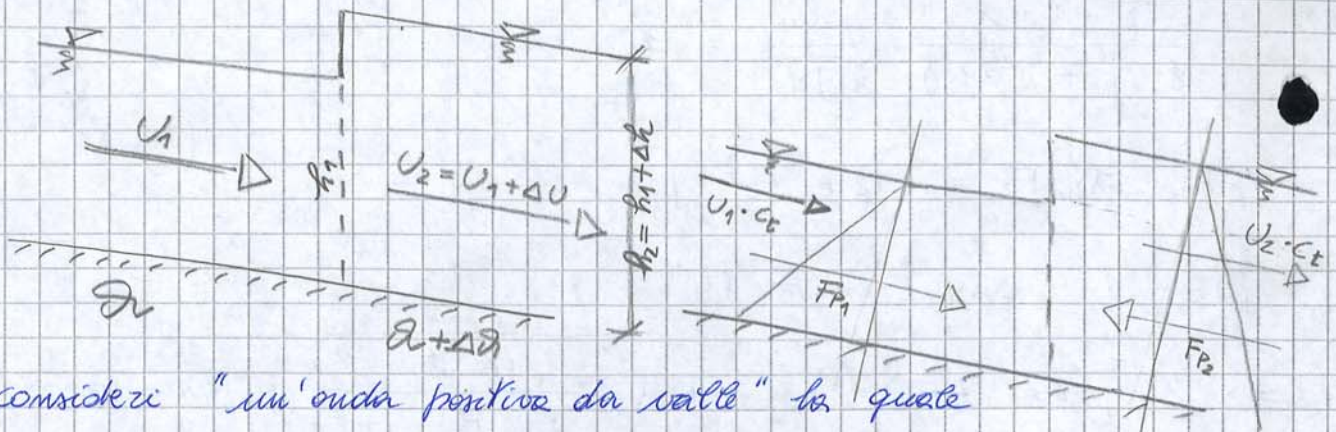 U₁
h₁
U₂ = U₁ + ΔU
h₂ = h₁ + Δh
Ω
Ω + ΔΩ
U₁ · cₜ
Fp₁
U₂ · cₜ
Fp₂
consideri "un'onda positiva da valle" la quale